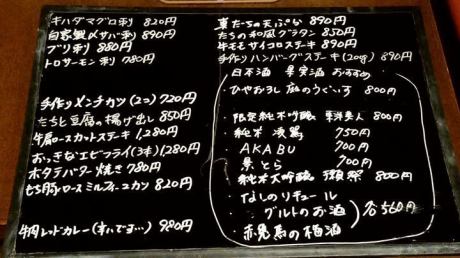 キハダマグロ刺 820円
自家製〆サバ刺 890円
ブリ刺 880円
トロサーモン刺 780円
手作りメンチカツ(2コ) 720円
たちと豆腐の揚げ出し 850円
牛肩ロースカットステーキ 1,280円
おっきなエビフライ(3本) 1,280円
ホタテバター焼き 780円
もち豚ロースミルフィーユカツ 820円
牛すじレッドカレー 980円
真だちの天ぷら 890円
たちの和風グラタン 850円
牛モモサイコロステーキ 890円
手作りハンバーグステーキ(200g) 890円
日本酒 果実酒 おすすめ
ひやおろし 庭のうぐいす 800円
・限定純米吟醸 東洋美人 800円
・純米 浅鶯 750円
・AKABU 700円
・景とら 700円
・純米大吟醸 獺祭 800円
・なしのリキュール
・ヨーグルトのお酒
・赤兎馬の梅酒
各560円